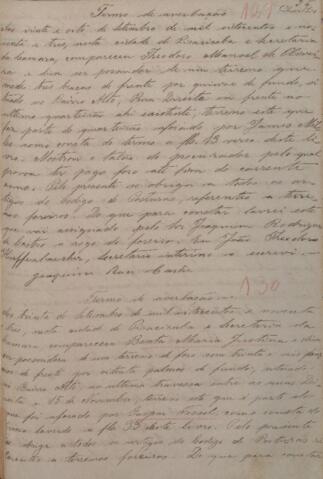 Termo de averbação 129
Aos vinte e oito de Setembro de mil oitocentos e no-
venta e tres, nesta cidade de Piracicaba e Secretaria
da Camara, compareceu Theodoro Manoel de Oliveira
e disse ser possuidor de um terreno que
mede tres braças de frente por quinze de fundo, si-
tuado no Bairro Alto, Rua Direita em frente ao
ultimo quarteirão ahi existente, terreno este que
faz parte do quarteirão aforado por
como consta do termo a fls. 13 verso deste li-
vro. Mostrou o talão do procurador pelo qual
provou ter pago foro até fim do corrente
anno. Pelo presente se obriga a todos os ar-
tigos do Codigo de Posturas, referentes a terre-
nos foreiros. Do que para constar lavrei este
que vai assignado pelo Snr. Joaquim Rodrigues
de Castro a rogo do foreiro. Eu João Theodoro
Secretario interino o escrevi
Joaquim Roiz Castro
Termo de averbação 130
Aos trinta de Setembro de mil oitocentos e noventa
e tres, nesta cidade de Piracicaba e Secretaria da
Camara compareceu Benta Maria Jacintha e disse
ser possuidora de um terreno de foro com trinta e seis pal-
mos de frente por oitenta palmos de fundo, situado
no Bairro Alto, na ultima travessa entre as ruas Di-
reita e 15 de Novembro, terreno este que é parte do
que foi aforado por Gaspar como consta do
termo lavrado a fls 33 deste livro. Pelo presente
se obriga a todos os artigos do Codigo de Posturas re-
ferentes a terrenos foreiros. Do que para constar